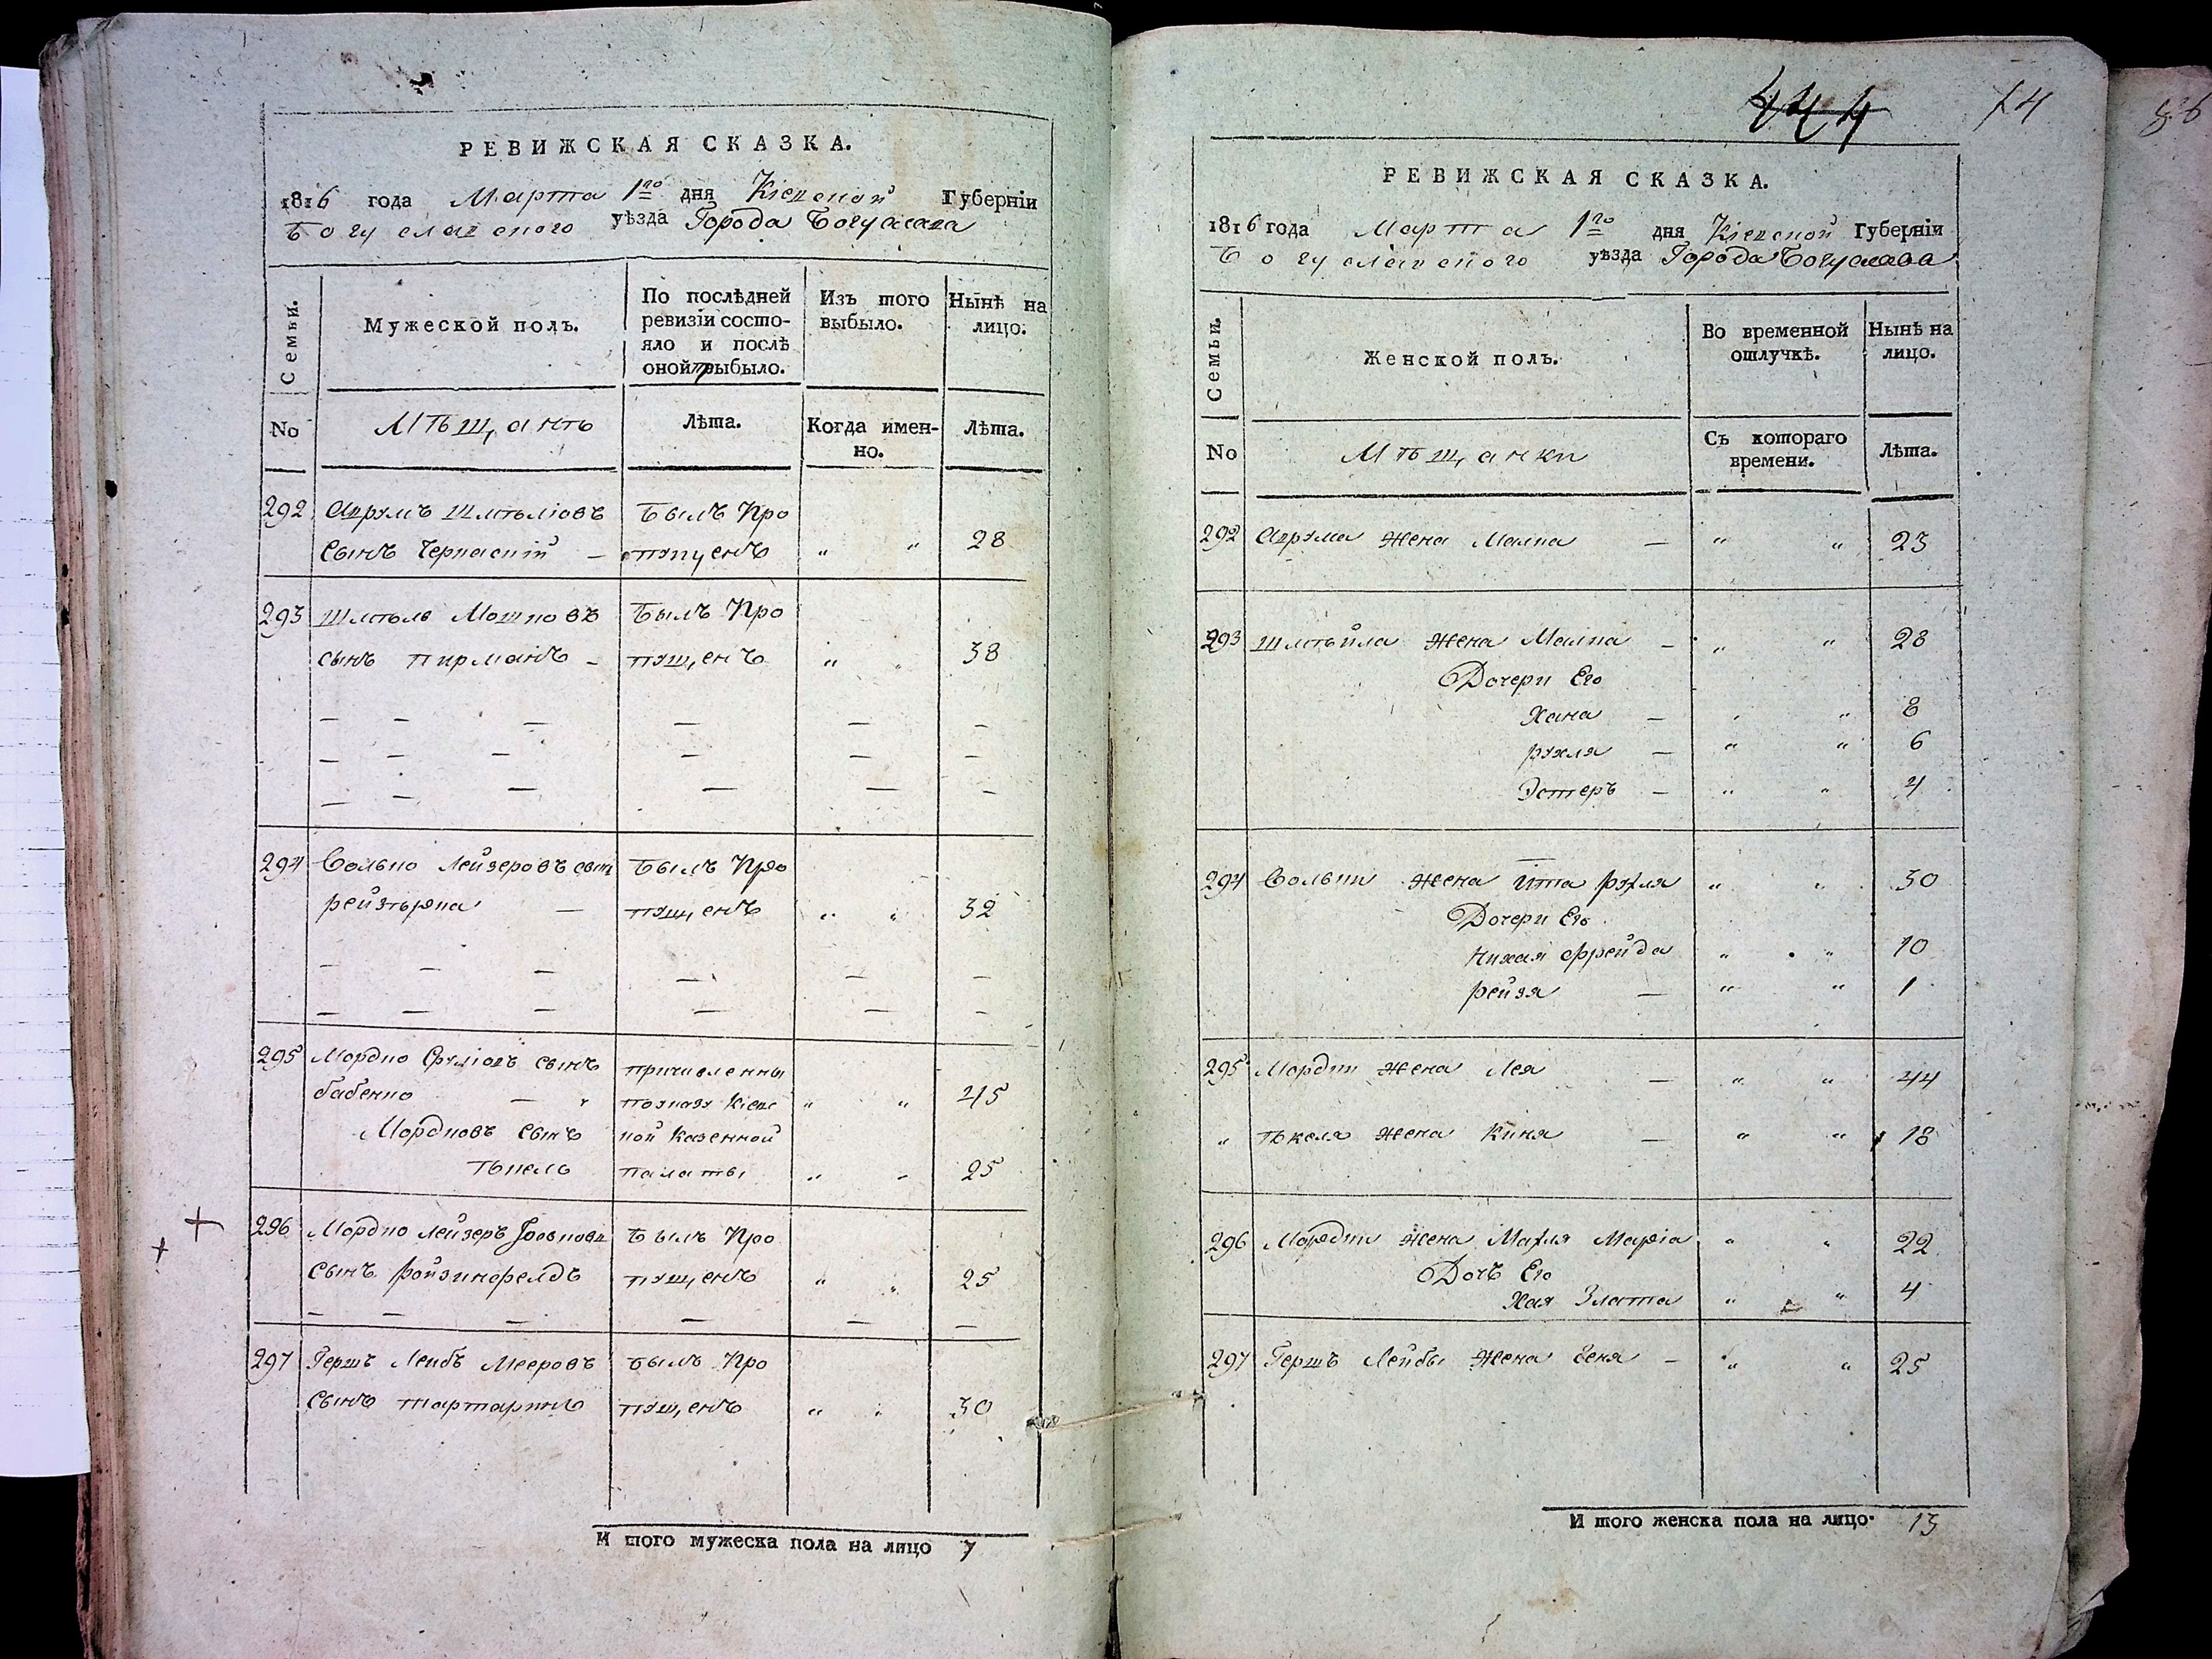 РЕВИЖСКАЯ СКАЗКА.
1816 года Марта 1го дня Кіевской Губерніи
Богуславского уѣзда Города Богуслава
Семьи.
Мужеской полъ.
По послѣдней ревизіи состояло и послѣ оной прибыло.
Изъ того выбыло.
Нынѣ на лицо.
No
Мѣщанъ
Лѣта.
Когда именно.
Лѣта.
292 Аврумъ Шмѣліовъ Былъ Про
сынъ Черкаскій — пущенъ „ „ 28
293 Шмѣль Мошковъ Былъ Про
сынъ Пирманъ — пущенъ „ „ 38
— — — — — —
— — — — — —
— — — — — —
294 Волько Лейзеровъ сынъ Былъ Про
— пущенъ „ „ 32
— — — — — —
— — — — — —
295 Мордко Сруліовъ сынъ причисленны
бабенко — поуказу Кіевс „ „ 45
Мордковъ сынъ кой казенной
палаты „ „ 25
296 Мордко Лейзеръ сынъ Былъ Про
пущенъ „ „ 25
— — — — — —
297 Гершъ Лейбъ Мееровъ былъ Про
сынъ пущенъ „ „ 30
И того мужеска пола на лицо 7
444 74
РЕВИЖСКАЯ СКАЗКА.
1816 года Марта 1го дня Кіевской Губерніи
Богуславского уѣзда Города Богуслава
Семьи.
Женской полъ.
Во временной отлучкѣ.
Нынѣ на лицо.
No
Мѣщанки
Съ котораго времени.
Лѣта.
292 Аврума жена Малка — „ „ 23
293 Шмѣйла жена Малка — „ „ 28
Дочери Его
Хана — „ „ 8
рухля — „ „ 6
Эстеръ — „ „ 4
294 Вольки жена Ита рухля „ „ 30
Дочери Его
фрейда „ „ 10
рейзя — „ „ 1
295 Мордки жена Лея — „ „ 44
„ жена Киня — „ „ 18
296 Мордки жена Махля Маріа „ „ 22
Дочь Его
Хая Злата „ „ 4
297 Гершъ Лейбы жена — „ „ 25
И того женска пола на лицо. 13
86